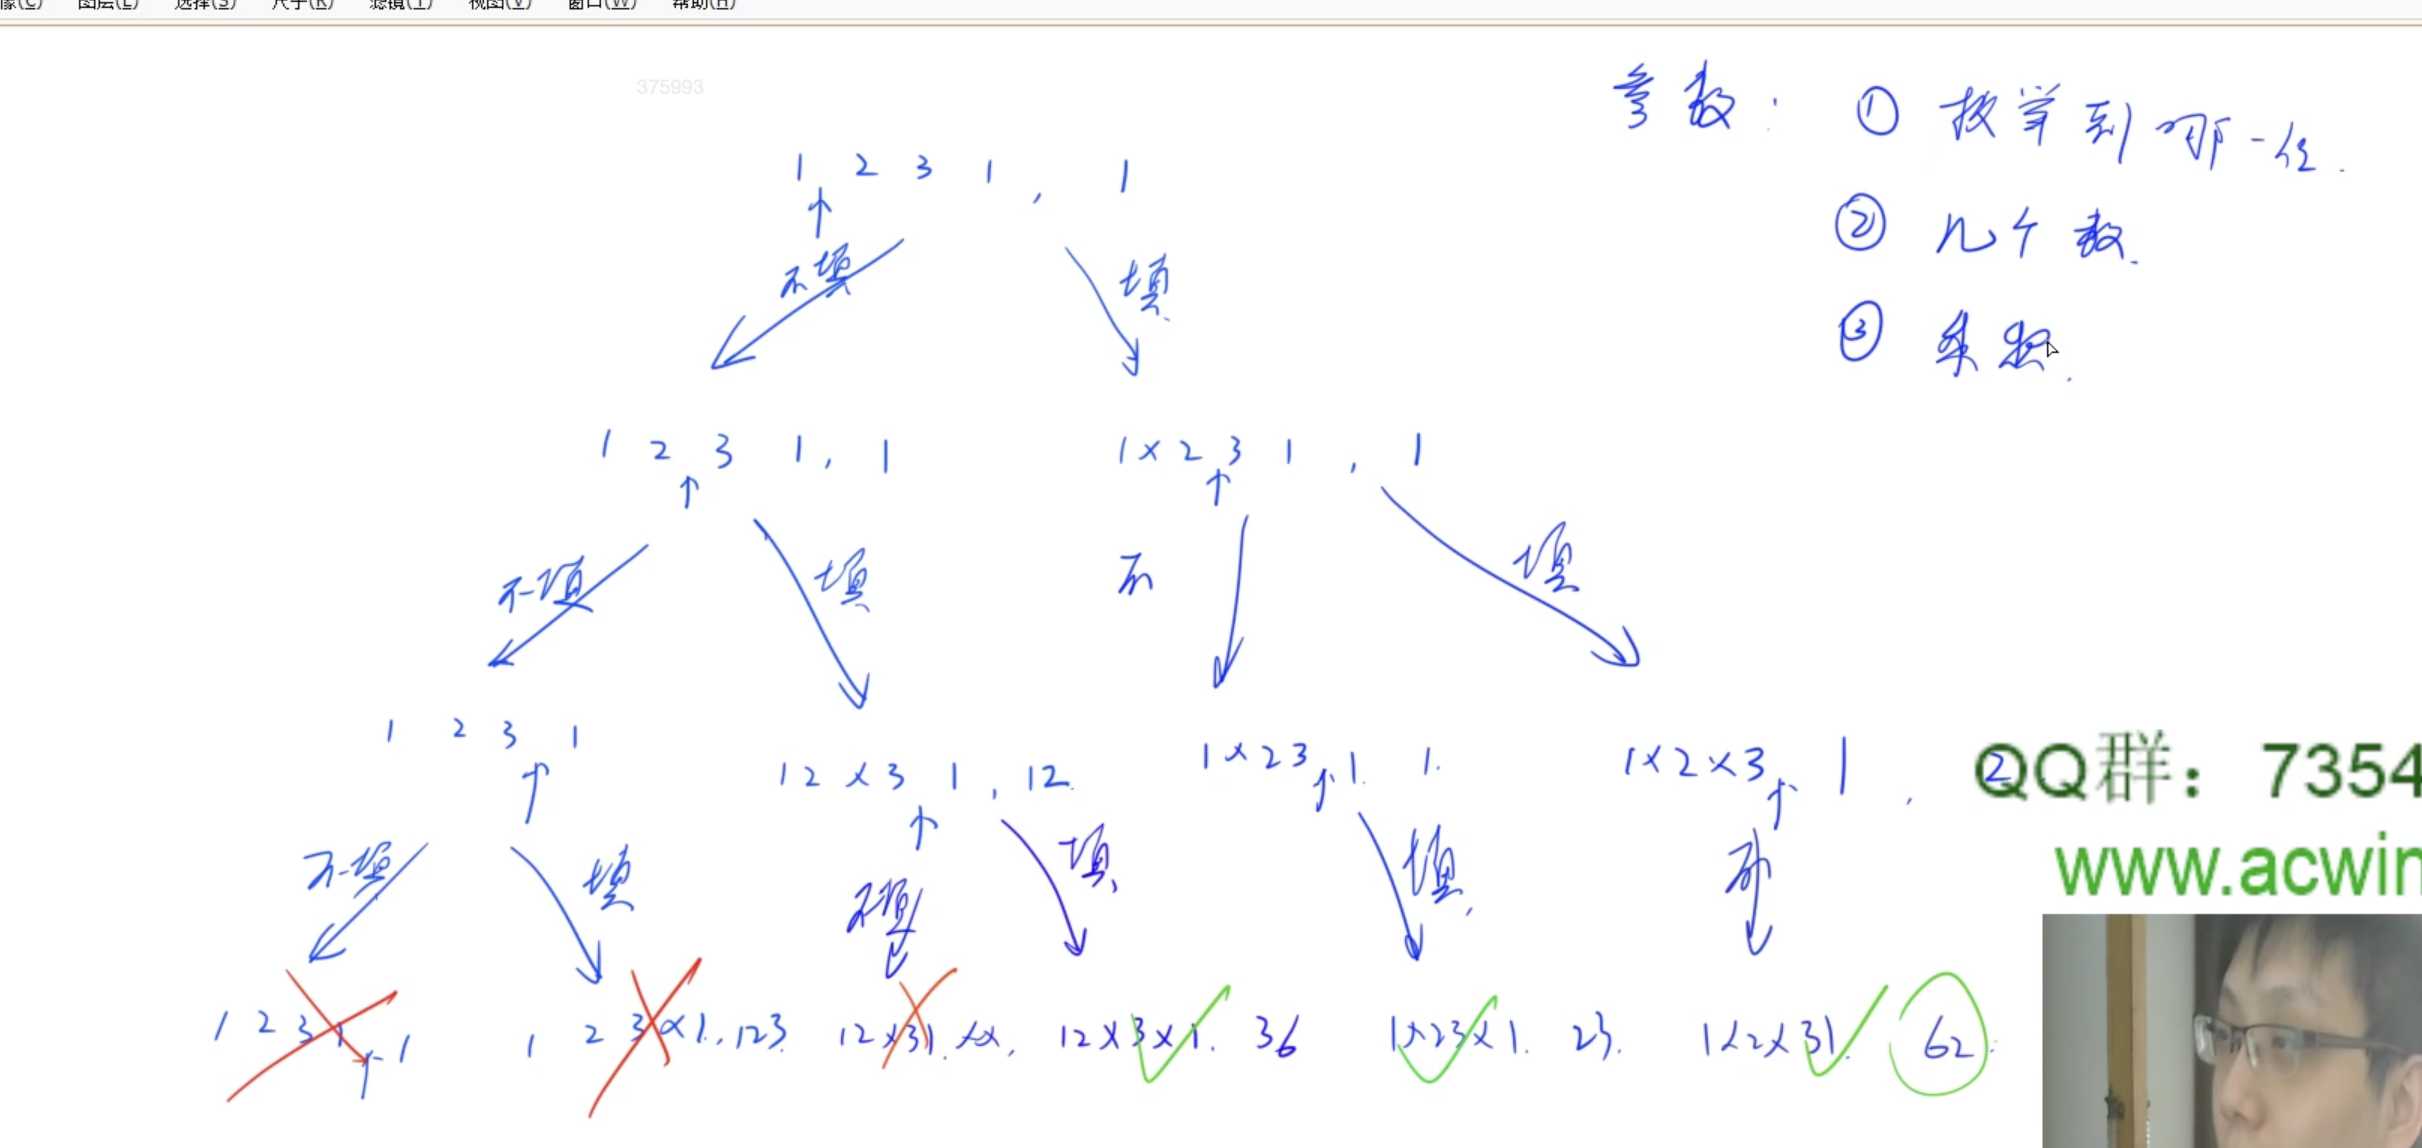 图层(L) 选择(S) 尺寸(R) 滤镜(T) 视图(V) 窗口(W) 帮助(H)
375993
参数: ① 枚举到哪一位.
② 几个数.
③ 乘积.
1 2 3 1 , 1
↑
不填 填
1 2 3 1 , 1 1×2 3 1 , 1
↑ ↑
不填 填 不 填
1 2 3 1 12×3 1 , 12. 1×23 1 1. 1×2×3 1 , 2
↑ ↑ ↑ ↑
不填 填 不填 填 填 不
1 2 3 1 1 1 2 3×1, 123 12×31. ××. 12×3×1. 36 1×23×1. 23. 1×2×31. 62.
QQ群: 7354
www.acwin